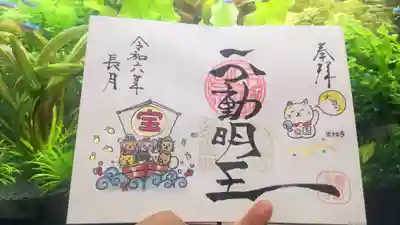 奉拝
不動明王
令和六年
長月
宝